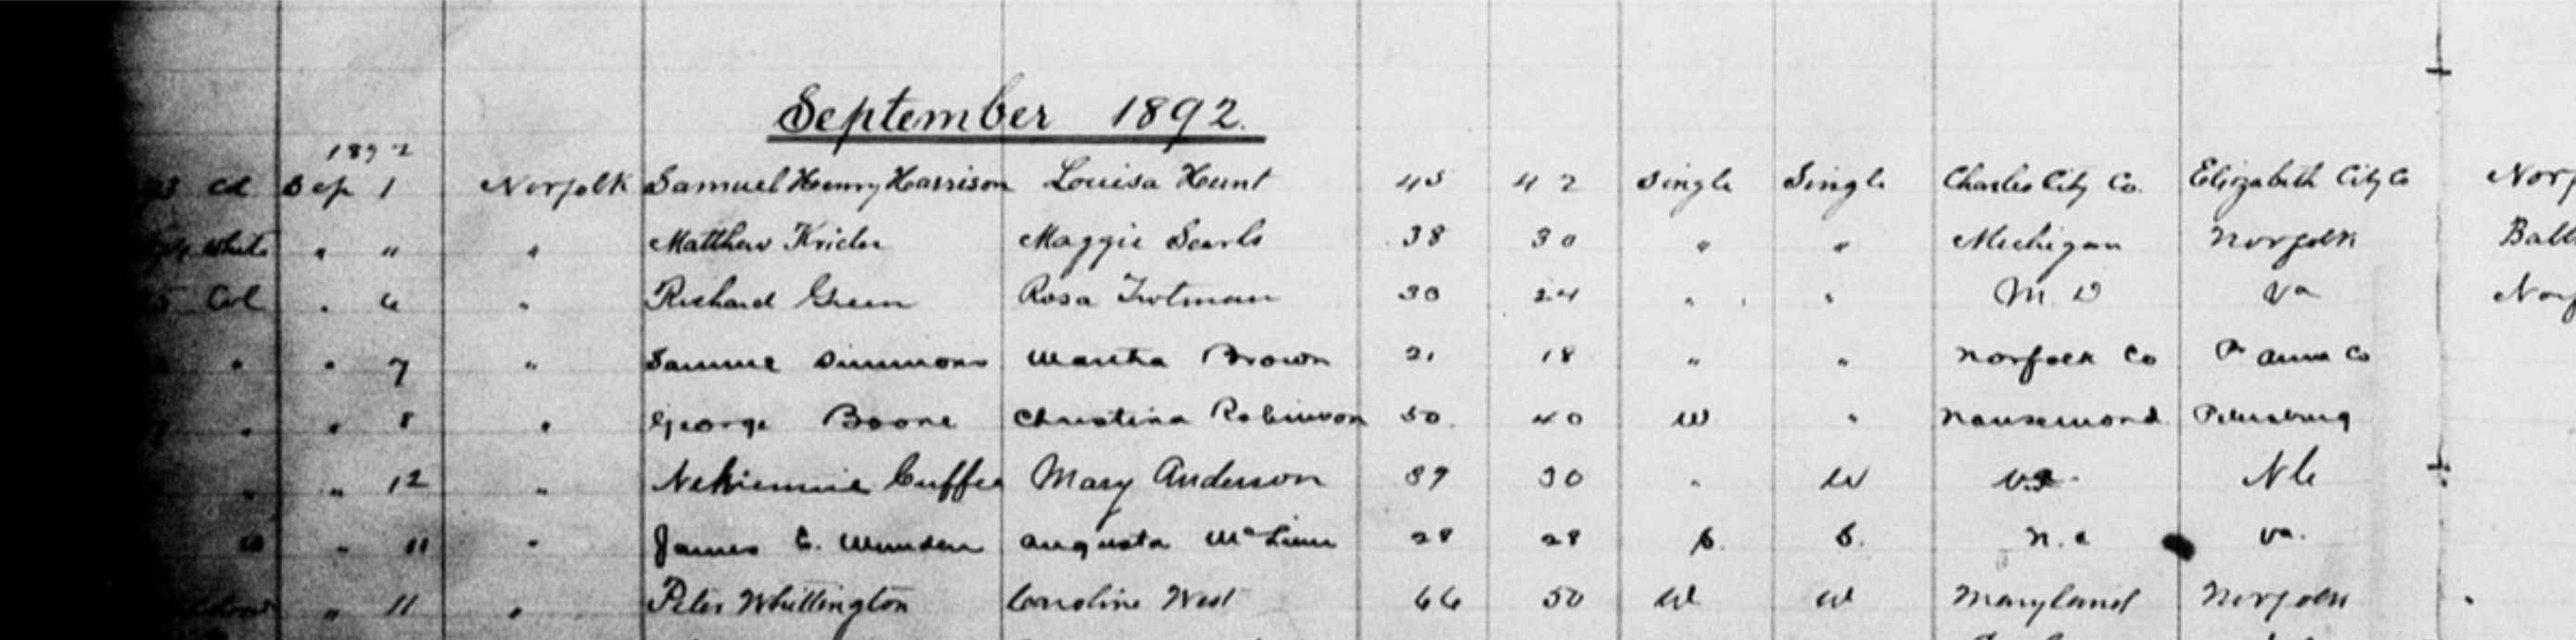 September 1892.
1892
Col Sep 1 Norfolk Samuel Henry Harrison Louisa Hunt 45 42 Single Single Charles City Co. Elizabeth City Co Norf
White " " " Matthew Maggie Searls 38 30 " " Michigan Norfolk Balt
5 Col " 6 " Richard Green Rosa Trotman 30 24 " " M. D Va Norf
" " 7 " Sammie Simmons Martha Brown 21 18 " " Norfolk Co P Anne Co
" " 8 " George Boone Christina Robinson 50 40 W " Nansemond Petersburg
" " 12 " Cuffee Mary Anderson 30 " W Va NC
" 11 " James Augusta 28 28 S. S. N. C Va.
" 11 " Peter Whittington Caroline West 66 50 W W Maryland Norfolk "